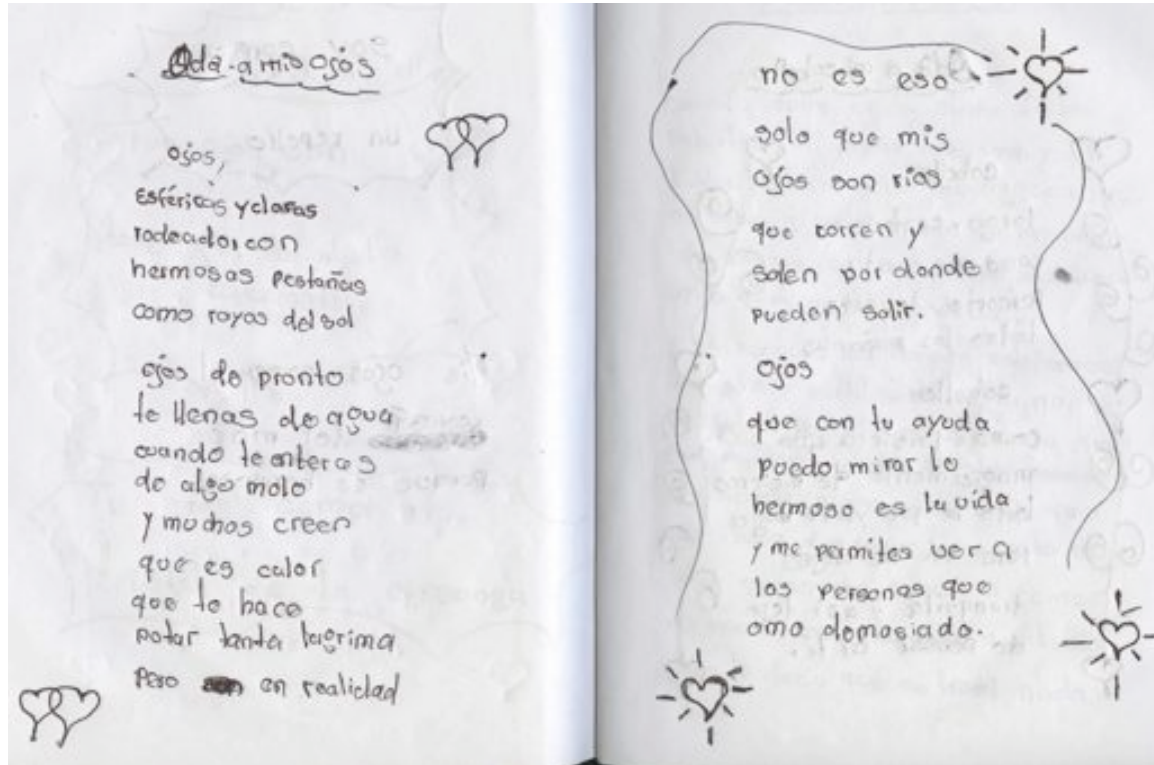 Oda a mis ojos
ojos,
Esféricos y claros
rodeados con
hermosas pestañas
como rayos del sol
ojos de pronto
te llenas de agua
cuando te enteras
de algo malo
y muchos creen
que es calor
que te hace
botar tanta lagrima
Pero en realidad
no es eso
solo que mis
ojos son rios
que corren y
salen por donde
pueden salir.
ojos
que con tu ayuda
puedo mirar lo
hermoso es la vida
y me permites ver a
las personas que
amo demasiado.